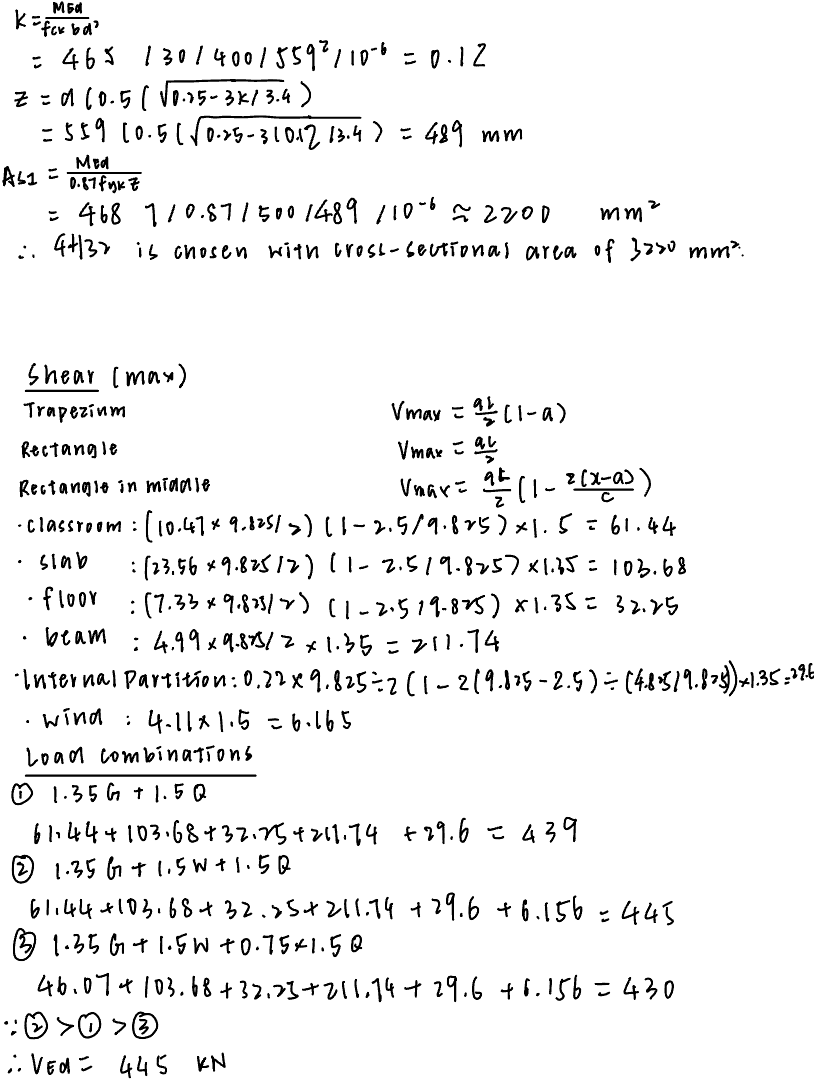 K = MEd / fck bd²
= 465 / 30 / 400 / 559² / 10⁻⁶ = 0.12
Z = d (0.5 ( √0.25 - 3K / 3.4 )
= 559 (0.5 ( √0.25 - 3(0.12 / 3.4 ) = 489 mm
As1 = MEd / 0.87 fyk Z
= 468 7 / 0.87 / 500 / 489 / 10⁻⁶ ≈ 2200 mm²
∴ 4H32 is chosen with cross-sectional area of 3220 mm².
Shear (max)
Trapezium Vmax = qL/2 (1-a)
Rectangle Vmax = qL/2
Rectangle in middle Vmax = qL/2 (1 - 2(x-a)/c)
· classroom : (10.47 × 9.825 / 2) (1 - 2.5 / 9.825) × 1.5 = 61.44
· slab : (23.56 × 9.825 / 2) (1 - 2.5 / 9.825) × 1.35 = 103.68
· floor : (7.33 × 9.825 / 2) (1 - 2.5 / 9.825) × 1.35 = 32.25
· beam : 4.99 × 9.825 / 2 × 1.35 = 211.74
· Internal Partition : 0.22 × 9.825 ÷ 2 (1 - 2(9.825 - 2.5) ÷ (4.825 / 9.825)) × 1.35 = 29.6
· wind : 4.11 × 1.5 = 6.165
Load combinations
① 1.35G + 1.5Q
61.44 + 103.68 + 32.25 + 211.74 + 29.6 = 439
② 1.35G + 1.5W + 1.5Q
61.44 + 103.68 + 32.25 + 211.74 + 29.6 + 6.156 = 445
③ 1.35G + 1.5W + 0.75×1.5Q
46.07 + 103.68 + 32.25 + 211.74 + 29.6 + 6.156 = 430
∵ ② > ① > ③
∴ VEd = 445 KN